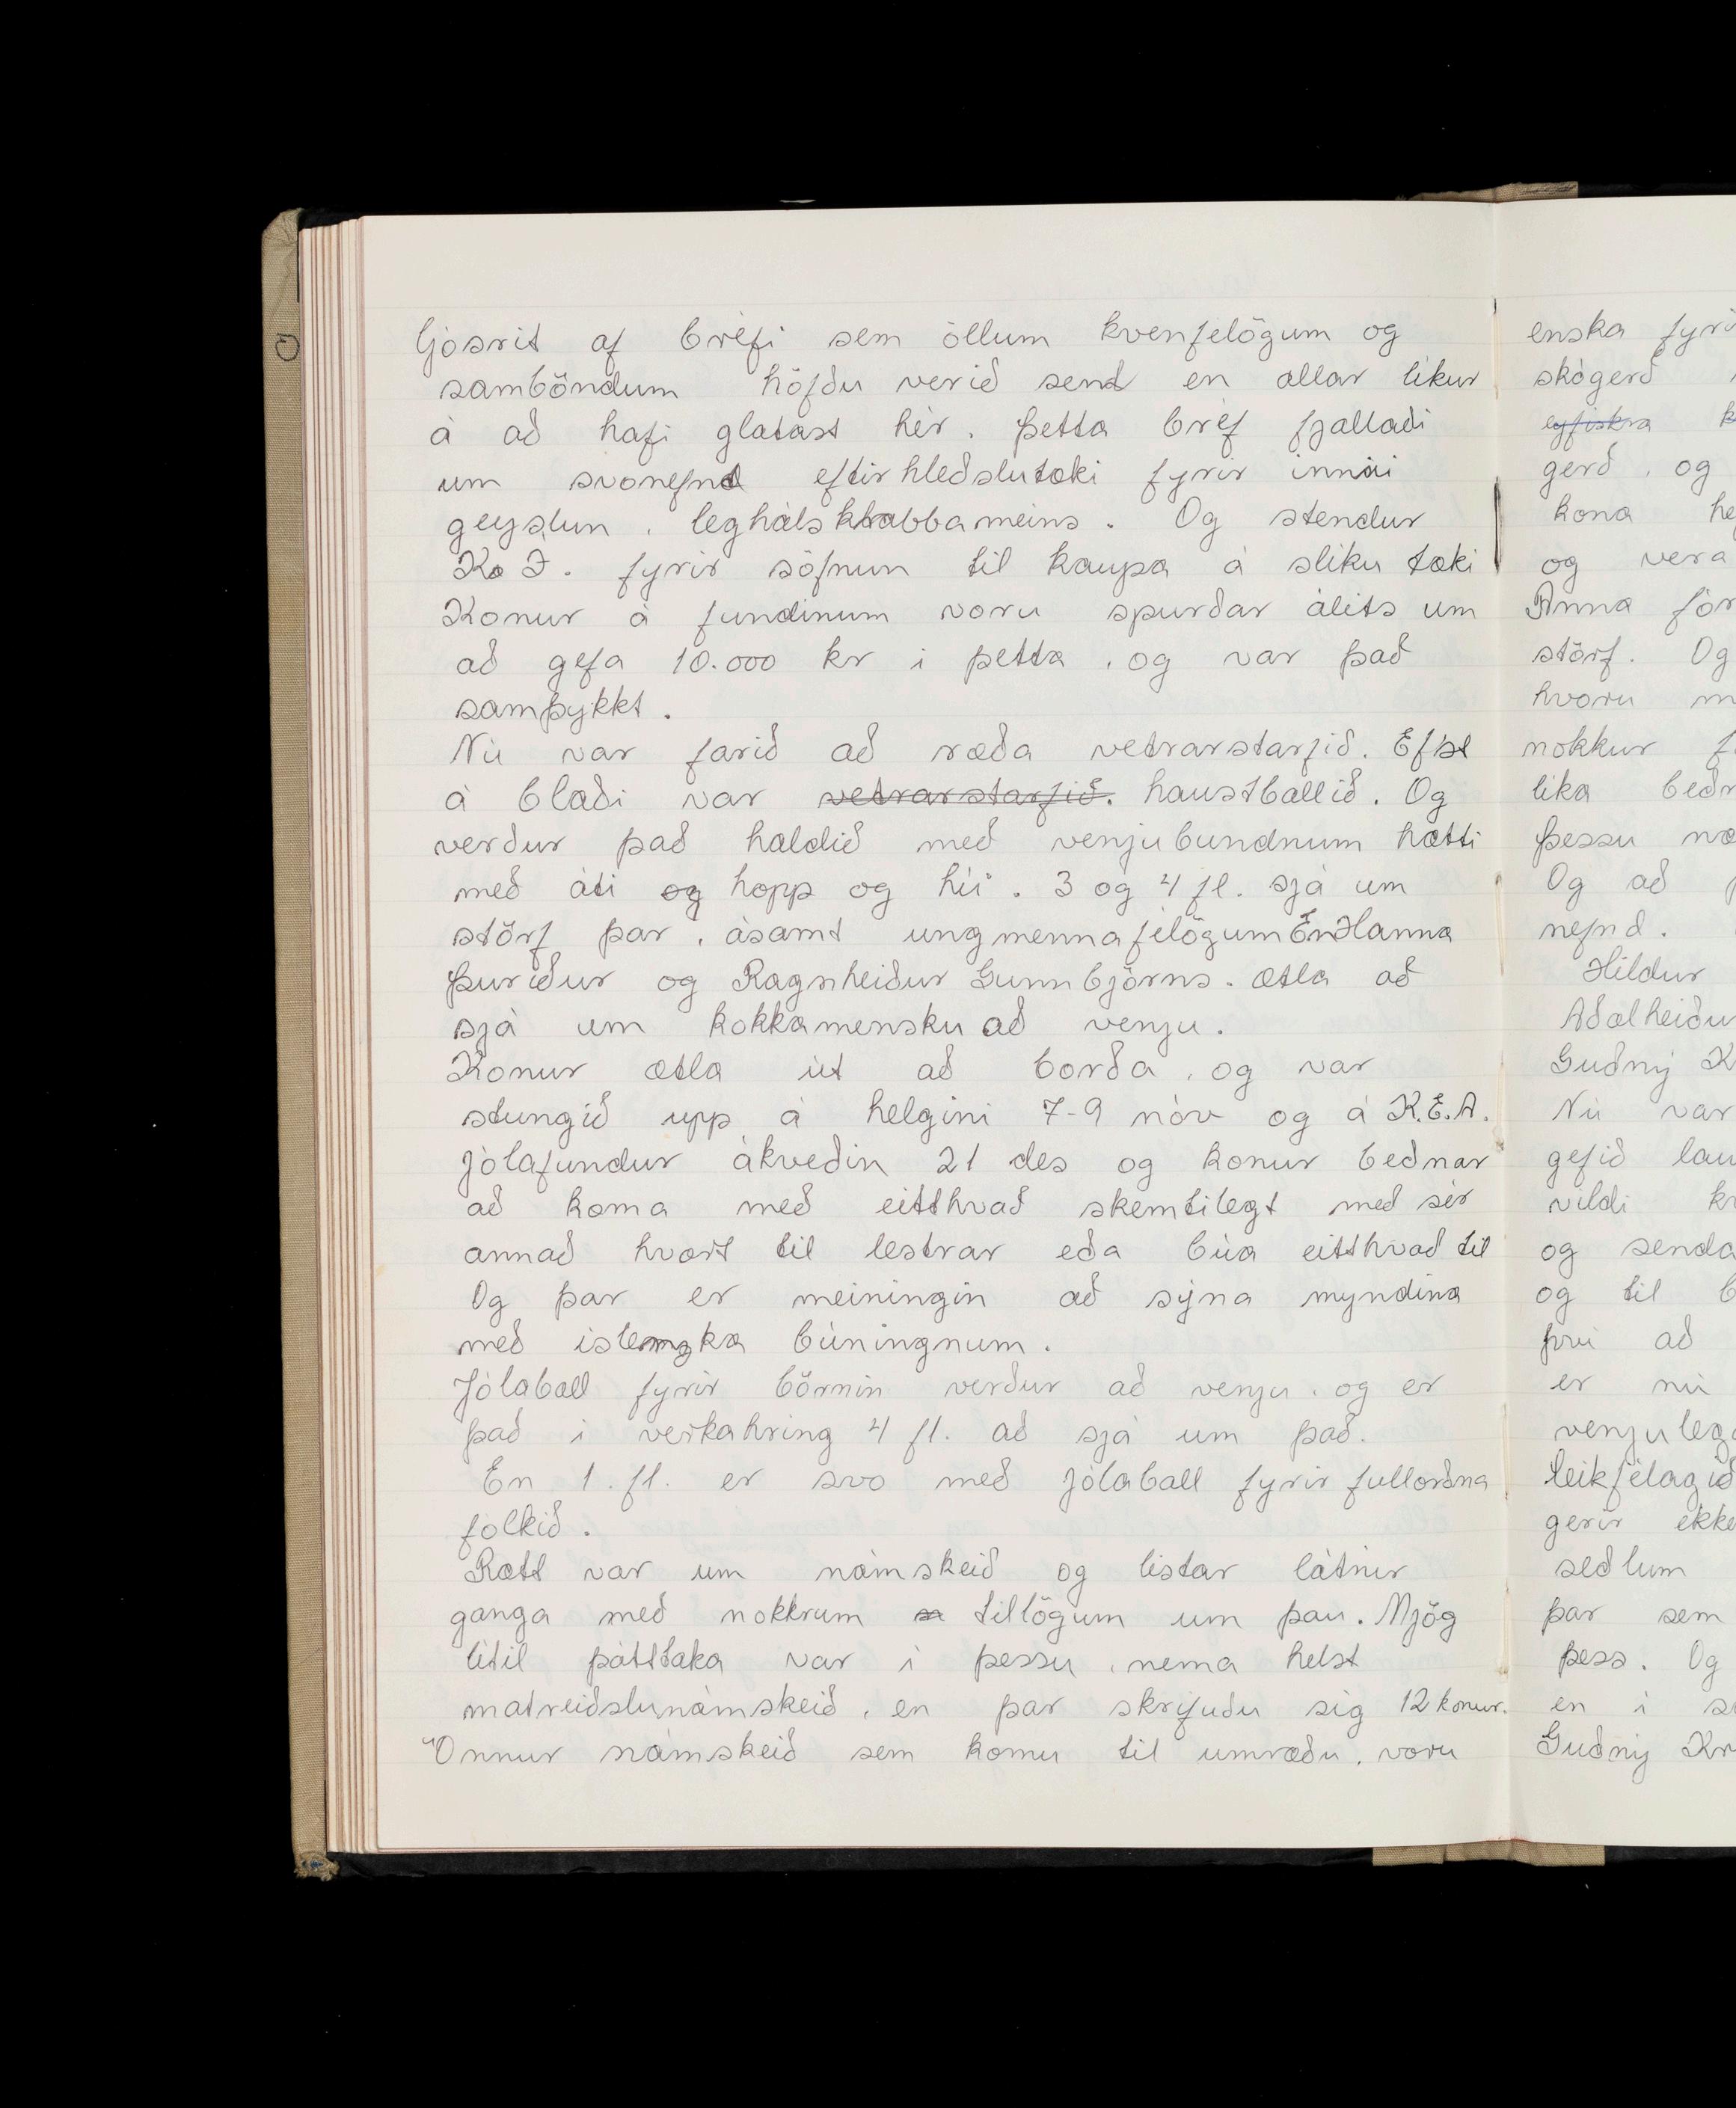 ljósrit af bréfi sem öllum kvenfélögum og
samböndum höfðu verið send en allar líkur
á að hafi glatast hér. Þetta bréf fjallaði
um svonefnd eftirhleðslutæki fyrir innri
geyslun, leghálskrabbameins. Og stendur
K.Í. fyrir söfnun til kaupa á slíku tæki
Konur á fundinum voru spurðar álits um
að gefa 10.000 kr í þetta, og var það
samþykkt.
Nú var farið að ræða vetrarstarfið. Efst
á blaði var vetrarstarfið. haustballið. Og
verður það haldið með venjubundnum hætti
með áti og hopp og híi. 3 og 4 fl. sjá um
störf þar, ásamt ungmennafélögum En Hanna
Þuríður og Ragnheiður Gunnbjörns. ætla að
sjá um kokkamensku að venju.
Konur ætla út að borða, og var
stungið upp á helgini 7-9 nóv og á K.E.A.
Jólafundur ákveðin 21 des og konur beðnar
að koma með eitthvað skemtilegt með sér
annað hvort til lestrar eða búa eitthvað til
Og þar er meiningin að sýna myndina
með íslenska búningnum.
Jólaball fyrir börnin verður að venju, og er
það í verkahring 4 fl. að sjá um það.
En 1. fl. er svo með Jólaball fyrir fullorðna
fólkið.
Rætt var um námskeið og listar látnir
ganga með nokkrum tillögum um þau. Mjög
lítil þátttaka var í þessu, nema helst
matreiðslunámskeið, en þar skrifuðu sig 12 konur.
Önnur námskeið sem komu til umræðu, voru
enska
skógerð
eyfiskra
gerð, og
kona
og vera
Anna
störf. Og
hvoru
nokkur
líka
þessu
Og að
nefnd.
Hildur
Aðalheiður
Guðný
Nú var
gefið
vildi
og senda
og til
því að
er nú
leikfélagið
gerir
seðlum
þar sem
þess. Og
en í
Guðný